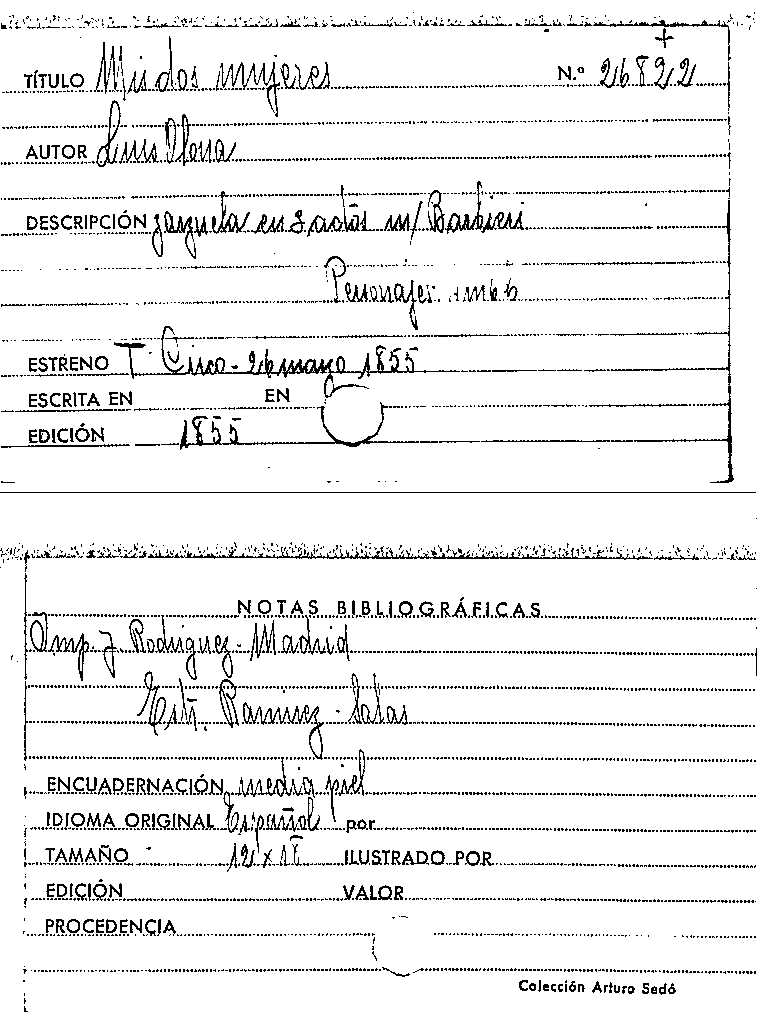 TÍTULO Mis dos mujeres N.º 26822
AUTOR Luis Olona
DESCRIPCIÓN zarzuela en 3 actos m/ Barbieri
Personajes:
ESTRENO T. Circo - 26 marzo 1855
ESCRITA EN EN
EDICIÓN 1855
NOTAS BIBLIOGRÁFICAS
Imp. J. Rodriguez - Madrid
Estr. Ramirez - Salas
ENCUADERNACIÓN media piel
IDIOMA ORIGINAL Español por
TAMAÑO 12 x 18 ILUSTRADO POR
EDICIÓN VALOR
PROCEDENCIA
Colección Arturo Sedó